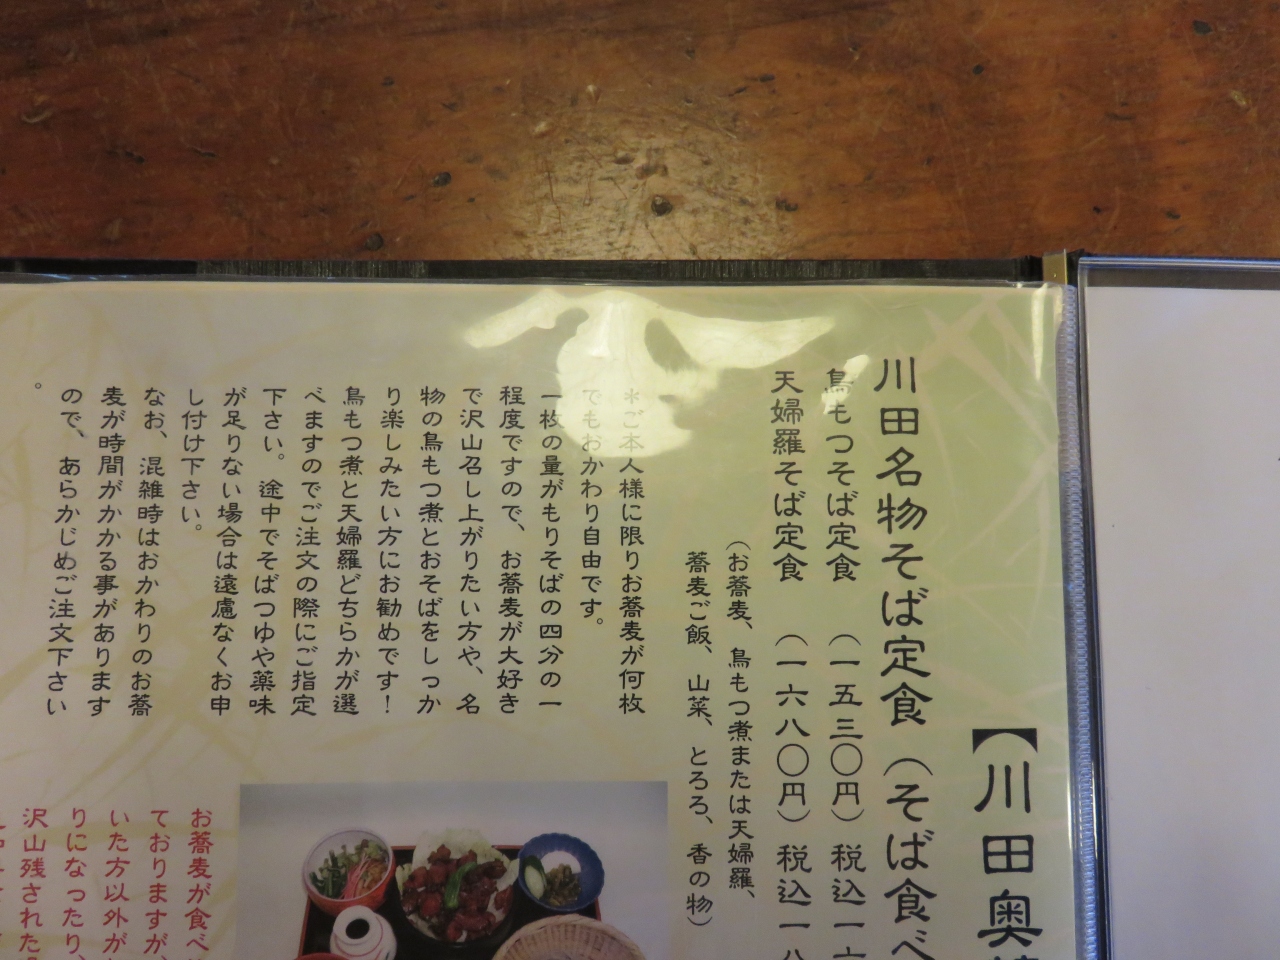 【川田奥
川田名物そば定食（そば食べ
鳥もつそば定食　（一五三〇円）税込一六
天婦羅そば定食　（一六八〇円）税込一八
（お蕎麦、鳥もつ煮または天婦羅、
蕎麦ご飯、山菜、とろろ、香の物）
＊ご本人様に限りお蕎麦が何枚
でもおかわり自由です。
一枚の量がもりそばの四分の一
程度ですので、お蕎麦が大好き
で沢山召し上がりたい方や、名
物の鳥もつ煮とおそばをしっか
り楽しみたい方にお勧めです！
鳥もつ煮と天婦羅どちらかが選
べますのでご注文の際にご指定
下さい。途中でそばつゆや薬味
が足りない場合は遠慮なくお申
し付け下さい。
なお、混雑時はおかわりのお蕎
麦が時間がかかる事があります
ので、あらかじめご注文下さい
。
お蕎麦が食べ
ておりますが、
いた方以外が
りになったり、
沢山残された